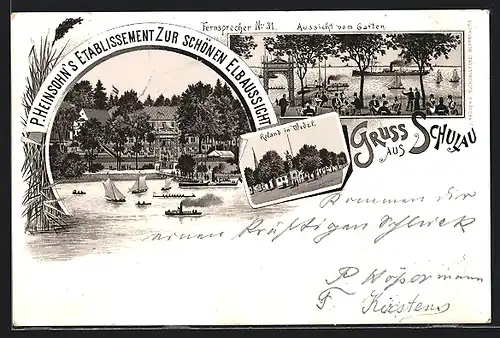 P. HEINSOHN'S ETABLISSEMENT ZUR SCHÖNEN ELBAUSSICHT
Fernsprecher No. 31. Aussicht vom Garten
Roland in Wedel.
GRUSS AUS SCHULAU
Kommen Ihr
einen kräftigen Schluck
P
F. Kirstens